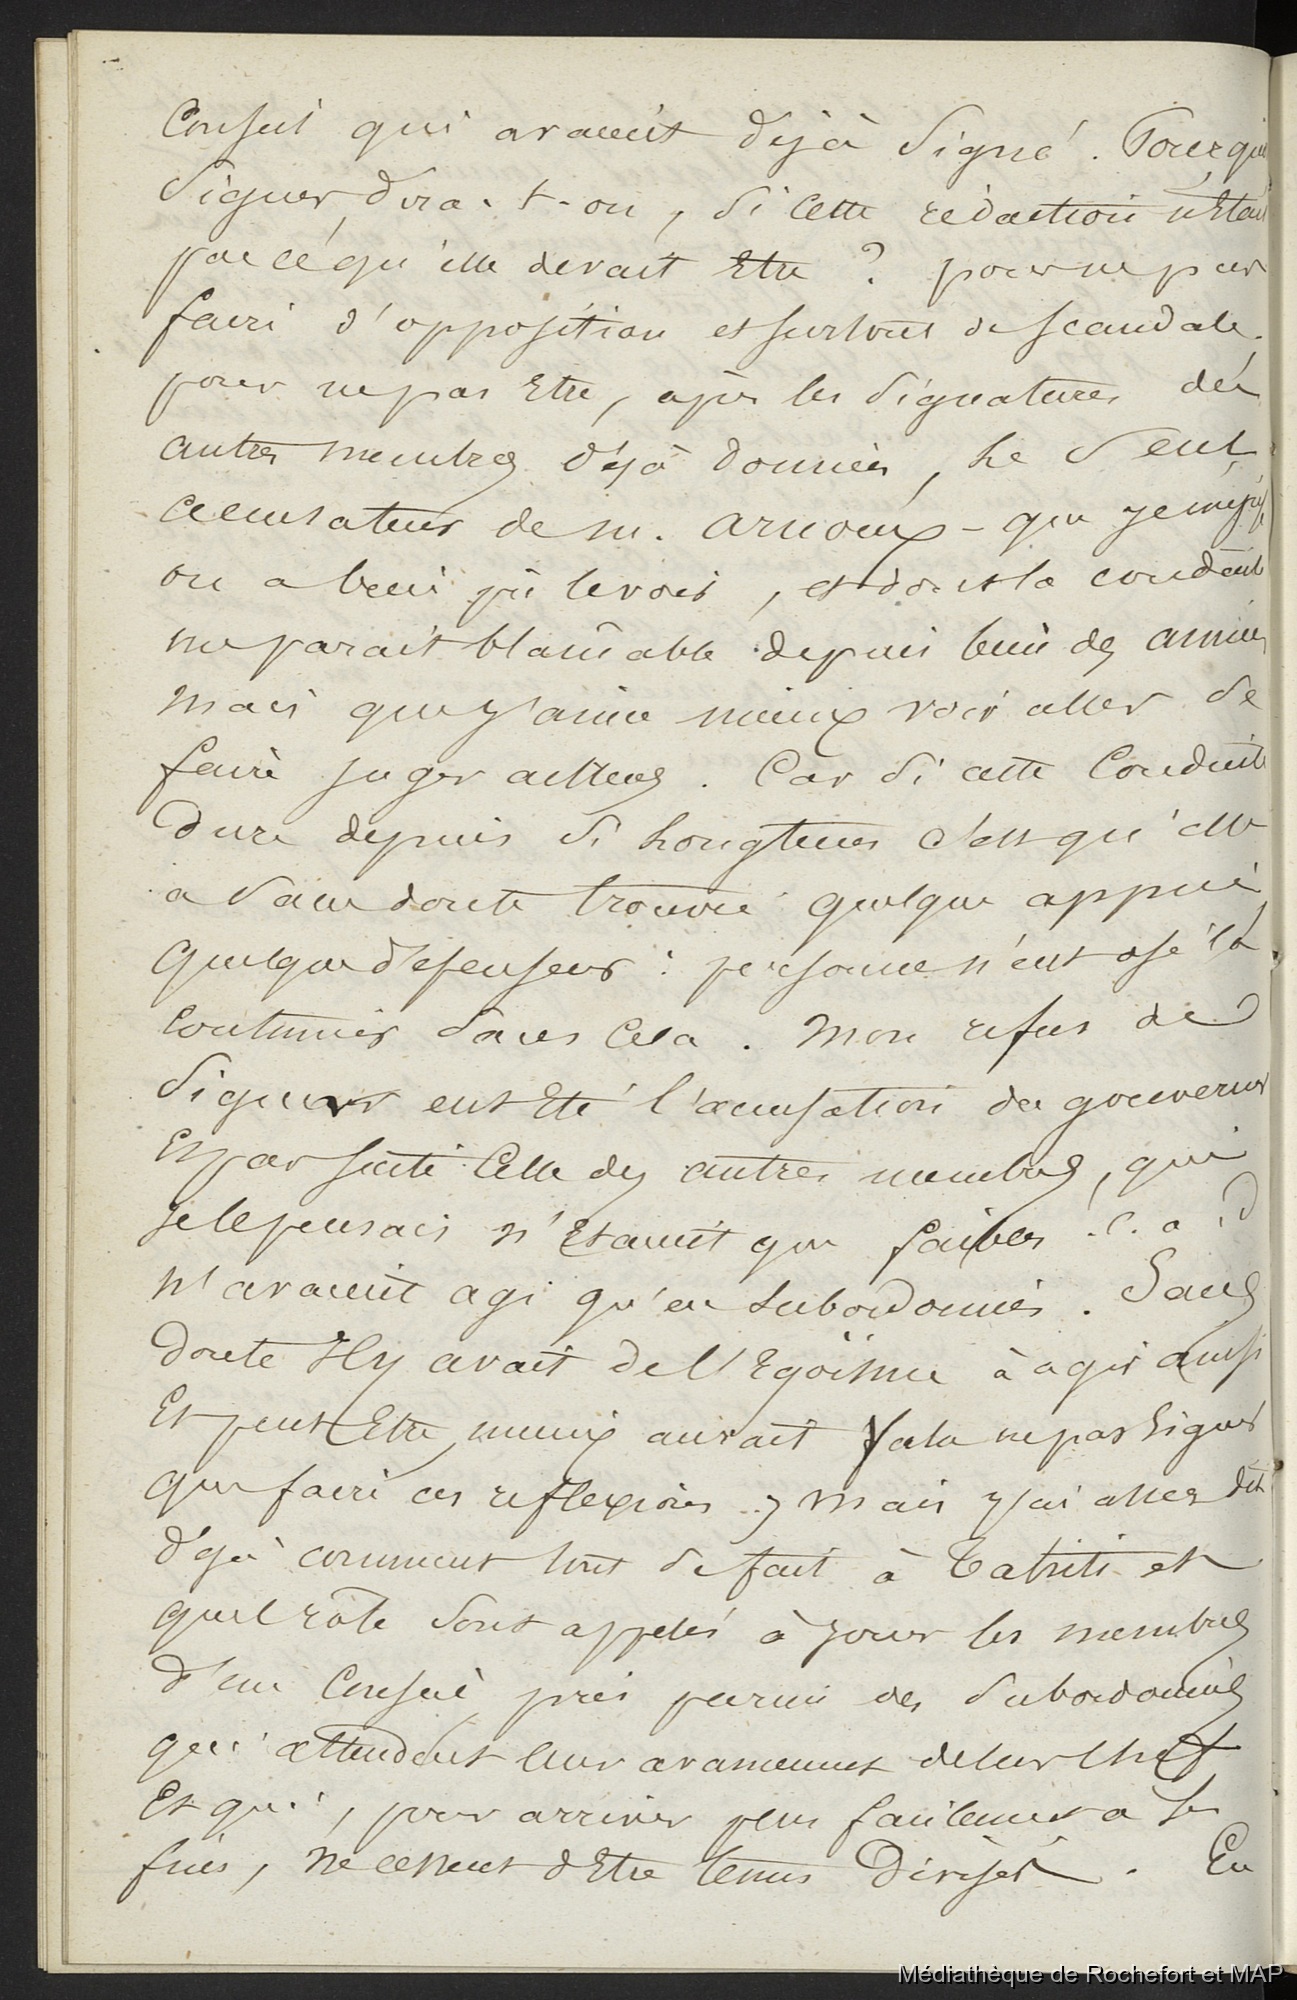 Conseil qui avaient déjà signé. Pourquoi
signer dira-t-on, si cette rédaction n'était
pas ce qu'elle devait Etre ? pour ne pas
faire d'opposition et surtout de scandale.
pour ne pas Etre, après les signatures des
autres membres déjà données, le seul
accusateur de m. arnoux - que je méprise
on a bien pu le voir, et dont la conduite
me parait blamable depuis bien des années
mais que j'aime mieux voir aller se
faire juger ailleurs. Car si cette Conduite
dure depuis si longtems c'est qu'elle
a sans doute trouvé quelque appui
quelque défenseur : personne n'eut osé la
continuer sans cela. Mon refus de
signer eut Eté l'accusation du gouverneur
Et par suite Celle des autres membres, qui
je le pensais n'Etaient que faibles. c. a. d
n'avaient agi qu'en subordonnés. Sans
doute il y avait de l'Egoïsme à agir ainsi
Et peut Etre mieux aurait valu ne pas signer
que faire ces reflexions ; mais j'ai assez dit
déjà comment tout se fait à Tahiti et
quel rôle sont appelés à jouer les membres
d'un Conseil pris parmi des subordonnés
qui attendent leur avancement de leur chef
Et qui, pour arriver plus facilement à ses
fins, ne cessent d'Etre tenus divisés. En
Médiathèque de Rochefort et MAP